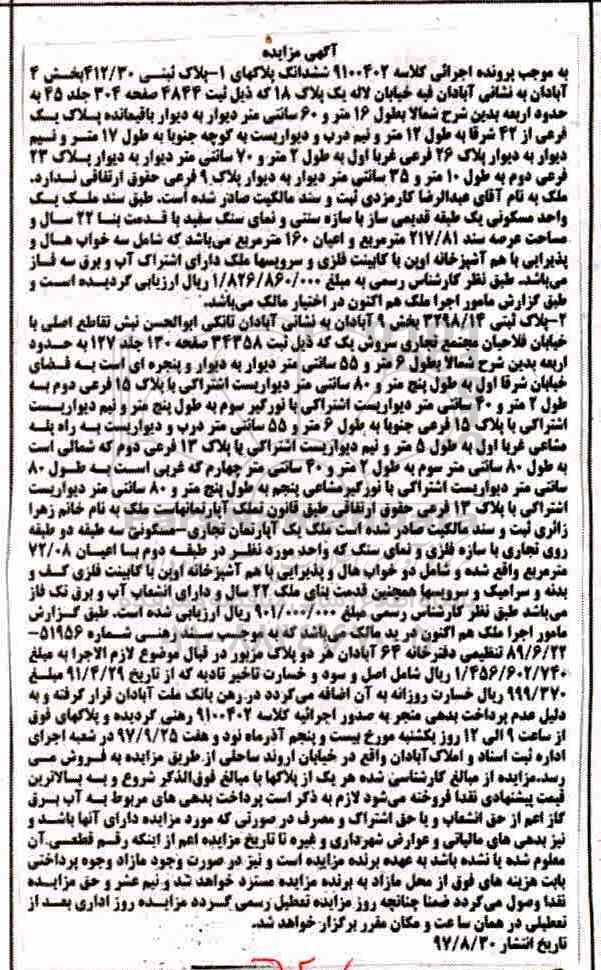 آگهی مزایده
به موجب پرونده اجرائی کلاسه ۹۱۰۰۴۰۲ ششدانگ پلاکهای ۱-پلاک ثبتی ۴۱۲/۳۰بخش ۴
آبادان به نشانی آبادان فیه خیابان لاله یک پلاک ۱۸ که ذیل ثبت ۴۸۴۴ صفحه ۳۰۴ جلد ۴۵ به
حدود اربعه بدین شرح شمالا بطول ۱۶ متر و ۶۰ سانتی متر دیوار به دیوار باقیمانده پلاک یک
فرعی از ۴۲ شرقا به طول ۱۲ متر و نیم درب و دیواریست به کوچه جنوبا به طول ۱۷ متر و نیم
دیوار به دیوار پلاک ۲۶ فرعی غربا اول به طول ۲ متر و ۷۰ سانتی متر دیوار به دیوار پلاک ۲۳
فرعی دوم به طول ۱۰ متر و ۳۵ سانتی متر دیوار به دیوار پلاک ۹ فرعی حقوق ارتفاقی ندارد.
ملک به نام آقای عبدالرضا کارمزدی ثبت و سند مالکیت صادر شده است. طبق سند ملک یک
واحد مسکونی یک طبقه قدیمی ساز با سازه سنتی و نمای سنگ سفید با قدمت بنا ۲۲ سال و
مساحت عرصه سند ۲۱۷/۸۱ مترمربع و اعیان ۱۶۰ مترمربع می‌باشد که شامل سه خواب هال و
پذیرایی با هم آشپزخانه اوپن با کابینت فلزی و سرویسها ملک دارای اشتراک آب و برق سه فاز
می‌باشد. طبق نظر کارشناس رسمی به مبلغ ۱/۸۲۶/۸۶۰/۰۰۰ ریال ارزیابی گردیده است و
طبق گزارش مامور اجرا ملک هم اکنون در اختیار مالک می‌باشد.
۲-پلاک ثبتی ۳۲۹۸/۱۴ بخش ۹ آبادان به نشانی آبادان تانکی ابوالحسن نبش تقاطع اصلی با
خیابان فلاحیان مجتمع تجاری سروش یک که ذیل ثبت ۳۴۳۵۸ صفحه ۱۳۰ جلد ۱۲۷ به حدود
اربعه بدین شرح شمالا بطول ۶ متر و ۵۵ سانتی متر دیوار به دیوار و پنجره ای است به فضای
خیابان شرقا اول به طول پنج متر و ۸۰ سانتی متر دیواریست اشتراکی با پلاک ۱۵ فرعی دوم به
طول ۲ متر و ۴۰ سانتی متر دیواریست اشتراکی با نورگیر سوم به طول پنج متر و نیم دیواریست
اشتراکی با پلاک ۱۵ فرعی جنوبا به طول ۶ متر و ۵۵ سانتی متر درب و دیواریست به راه پله
مشاعی غربا اول به طول ۵ متر و نیم دیواریست اشتراکی با پلاک ۱۳ فرعی دوم که شمالی است
به طول ۸۰ سانتی متر سوم به طول ۲ متر و ۴۰ سانتی متر چهارم که غربی است به طول ۸۰
سانتی متر دیواریست اشتراکی با نورگیرمشاعی پنجم به طول پنج متر و ۸۰ سانتی متر دیواریست
اشتراکی با پلاک ۱۳ فرعی حقوق ارتفاقی طبق قانون تملک آپارتمانهاست ملک به نام خانم زهرا
زائری ثبت و سند مالکیت صادر شده است ملک یک آپارتمان تجاری-مسکونی سه طبقه دو طبقه
روی تجاری با سازه فلزی و نمای سنگ که واحد مورد نظر در طبقه دوم با اعیان ۷۲/۰۸
مترمربع واقع شده و شامل دو خواب هال و پذیرایی با هم آشپزخانه اوپن با کابینت فلزی کف و
بدنه و سرامیک و سرویسها همچنین قدمت بنای ملک ۲۲ سال و دارای انشعاب آب و برق تک فاز
می‌باشد طبق نظر کارشناس رسمی مبلغ ۹۰۱/۰۰۰/۰۰۰ ریال ارزیابی شده است. طبق گزارش
مامور اجرا ملک هم اکنون در ید مالک می‌باشد که به موجب سند رهنی شماره ۵۱۹۵۶-
۸۹/۶/۲۲ تنظیمی دفترخانه ۶۴ آبادان هر دو پلاک مزبور در قبال موضوع لازم الاجرا به مبلغ
۱/۴۵۶/۶۰۲/۷۴۰ ریال شامل اصل و سود و خسارت تاخیر تادیه که از تاریخ ۹۱/۴/۲۹ مبلغ
۹۹۹/۳۷۰ ریال خسارت روزانه به آن اضافه می‌گردد در رهن بانک ملت آبادان قرار گرفته و به
دلیل عدم پرداخت بدهی منجر به صدور اجرائیه کلاسه ۹۱۰۰۴۰۲ رهنی گردیده و پلاکهای فوق
از ساعت ۹ الی ۱۲ روز یکشنبه مورخ بیست و پنجم آذرماه نود و هفت ۹۷/۹/۲۵ در شعبه اجرای
اداره ثبت اسناد و املاک‌آبادان واقع در خیابان اروند ساحلی از طریق مزایده به فروش می
رسد.مزایده از مبالغ کارشناسی شده هر یک از پلاکها با مبالغ فوق‌الذکر شروع و به بالاترین
قیمت پیشنهادی نقدا فروخته می‌شود لازم به ذکر است پرداخت بدهی های مربوط به آب برق
گاز اعم از حق انشعاب و یا حق اشتراک و مصرف در صورتی که مورد مزایده دارای آنها باشد و
نیز بدهی های مالیاتی و عوارض شهرداری و غیره تا تاریخ مزایده اعم از اینکه رقم قطعی.آن
معلوم شده یا نشده باشد به عهده برنده مزایده است و نیز در صورت وجود مازاد وجوه پرداختی
بابت هزینه های فوق از محل مازاد به برنده مزایده مسترد خواهد شد و نیم عشر و حق مزایده
نقدا وصول می‌گردد ضمنا چنانچه روز مزایده تعطیل رسمی گردد مزایده روز اداری بعد از
تعطیلی در همان ساعت و مکان مقرر برگزار خواهد شد.
تاریخ انتشار ۹۷/۸/۳۰